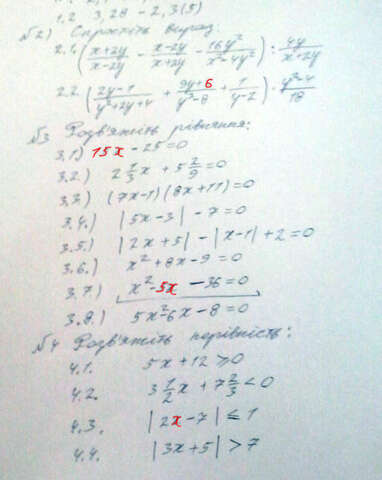 1.2 3,28 - 2,3(5)
№2) Спростіть вираз
2.1. ((x+2y)/(x-2y) - (x-2y)/(x+2y) - 16y²/(x²-4y²)) : 4y/(x+2y)
2.2. ((2y-1)/(y²+2y+4) + (9y+6)/(y³-8) + 1/(y-2)) · (y²-4)/18
№3 Розв'яжіть рівняння:
3.1) 15x - 25=0
3.2.) 2 1/3 x + 5 2/9 =0
3.3) (7x-1)(8x+11)=0
3.4.) |5x-3| - 7=0
3.5.) |2x+5| - |x-1| + 2=0
3.6.) x²+8x-9=0
3.7.) x²-5x -36=0
3.8.) 5x²-6x-8=0
№4 Розв'яжіть нерівність:
4.1. 5x+12 ≥0
4.2. 3 1/2 x + 7 2/3 <0
4.3. |2x-7| ≤ 1
4.4. |3x+5| >7